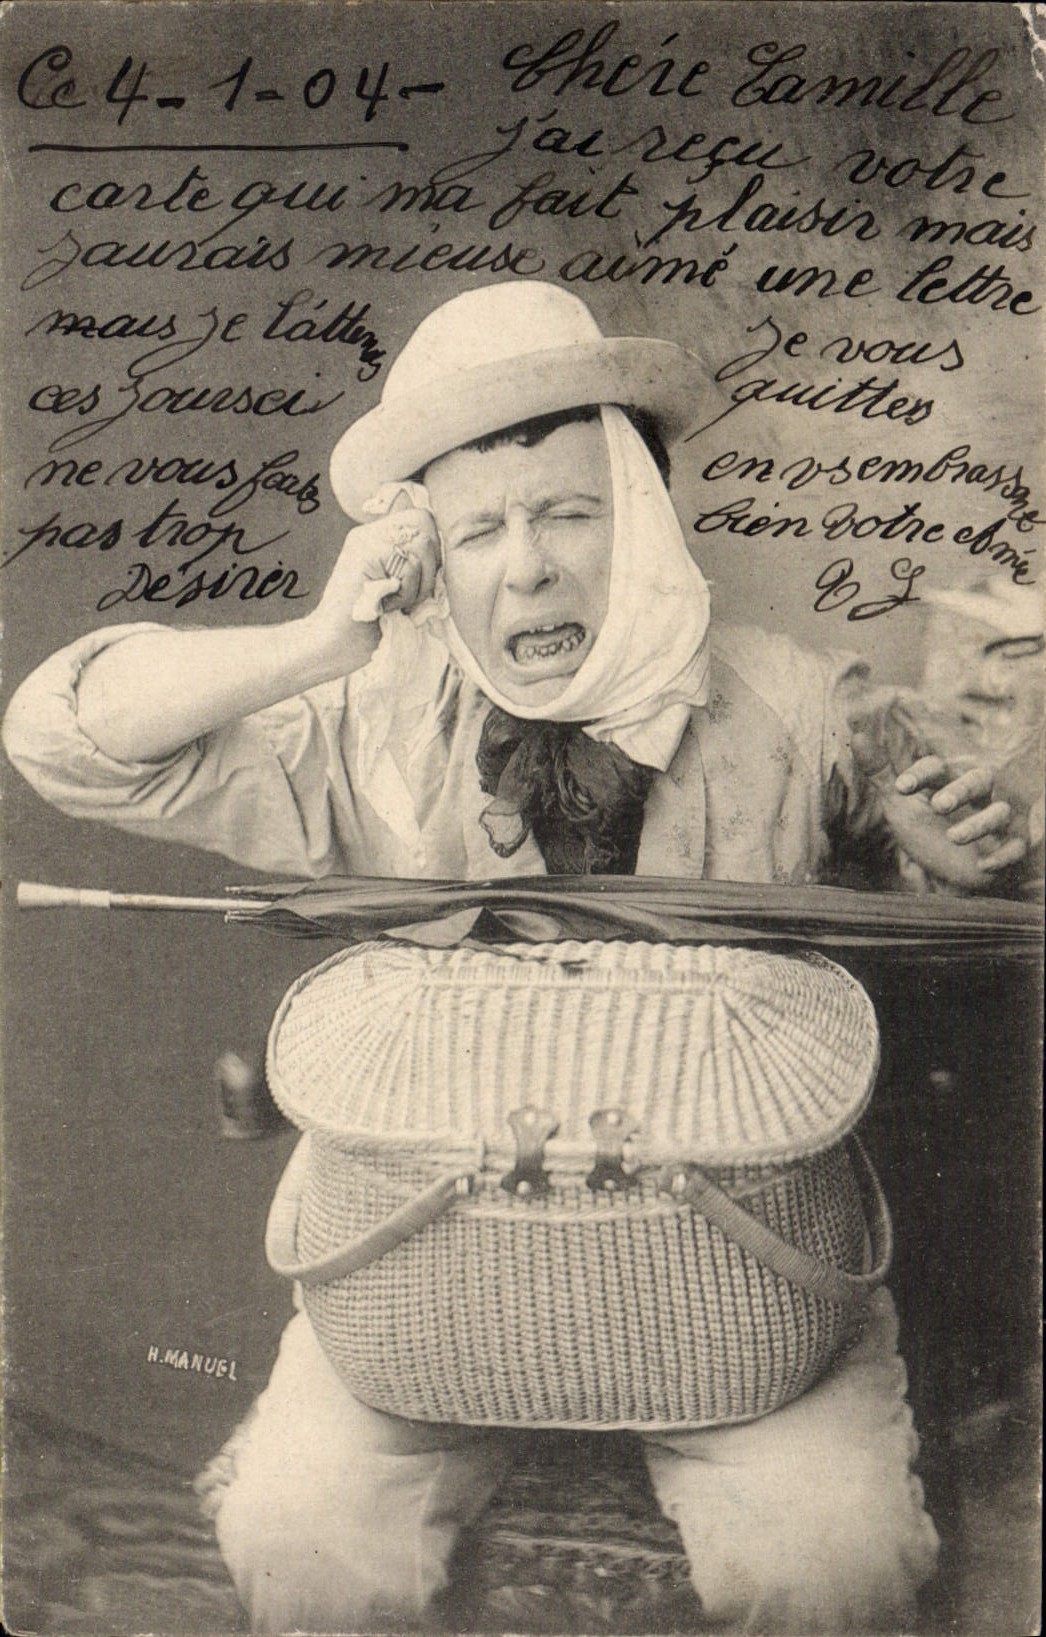 Ce 4-1-04-
Chére Camille
j'ai reçu votre
carte qui ma fait plaisir mais
jaurais mieuse aimé une lettre
mais je l'áttends
ces joursci
ne vous faites
pas trop
Désirér
Je vous
quittes
en vs embrassant
bien votre Amie
H. MANUEL